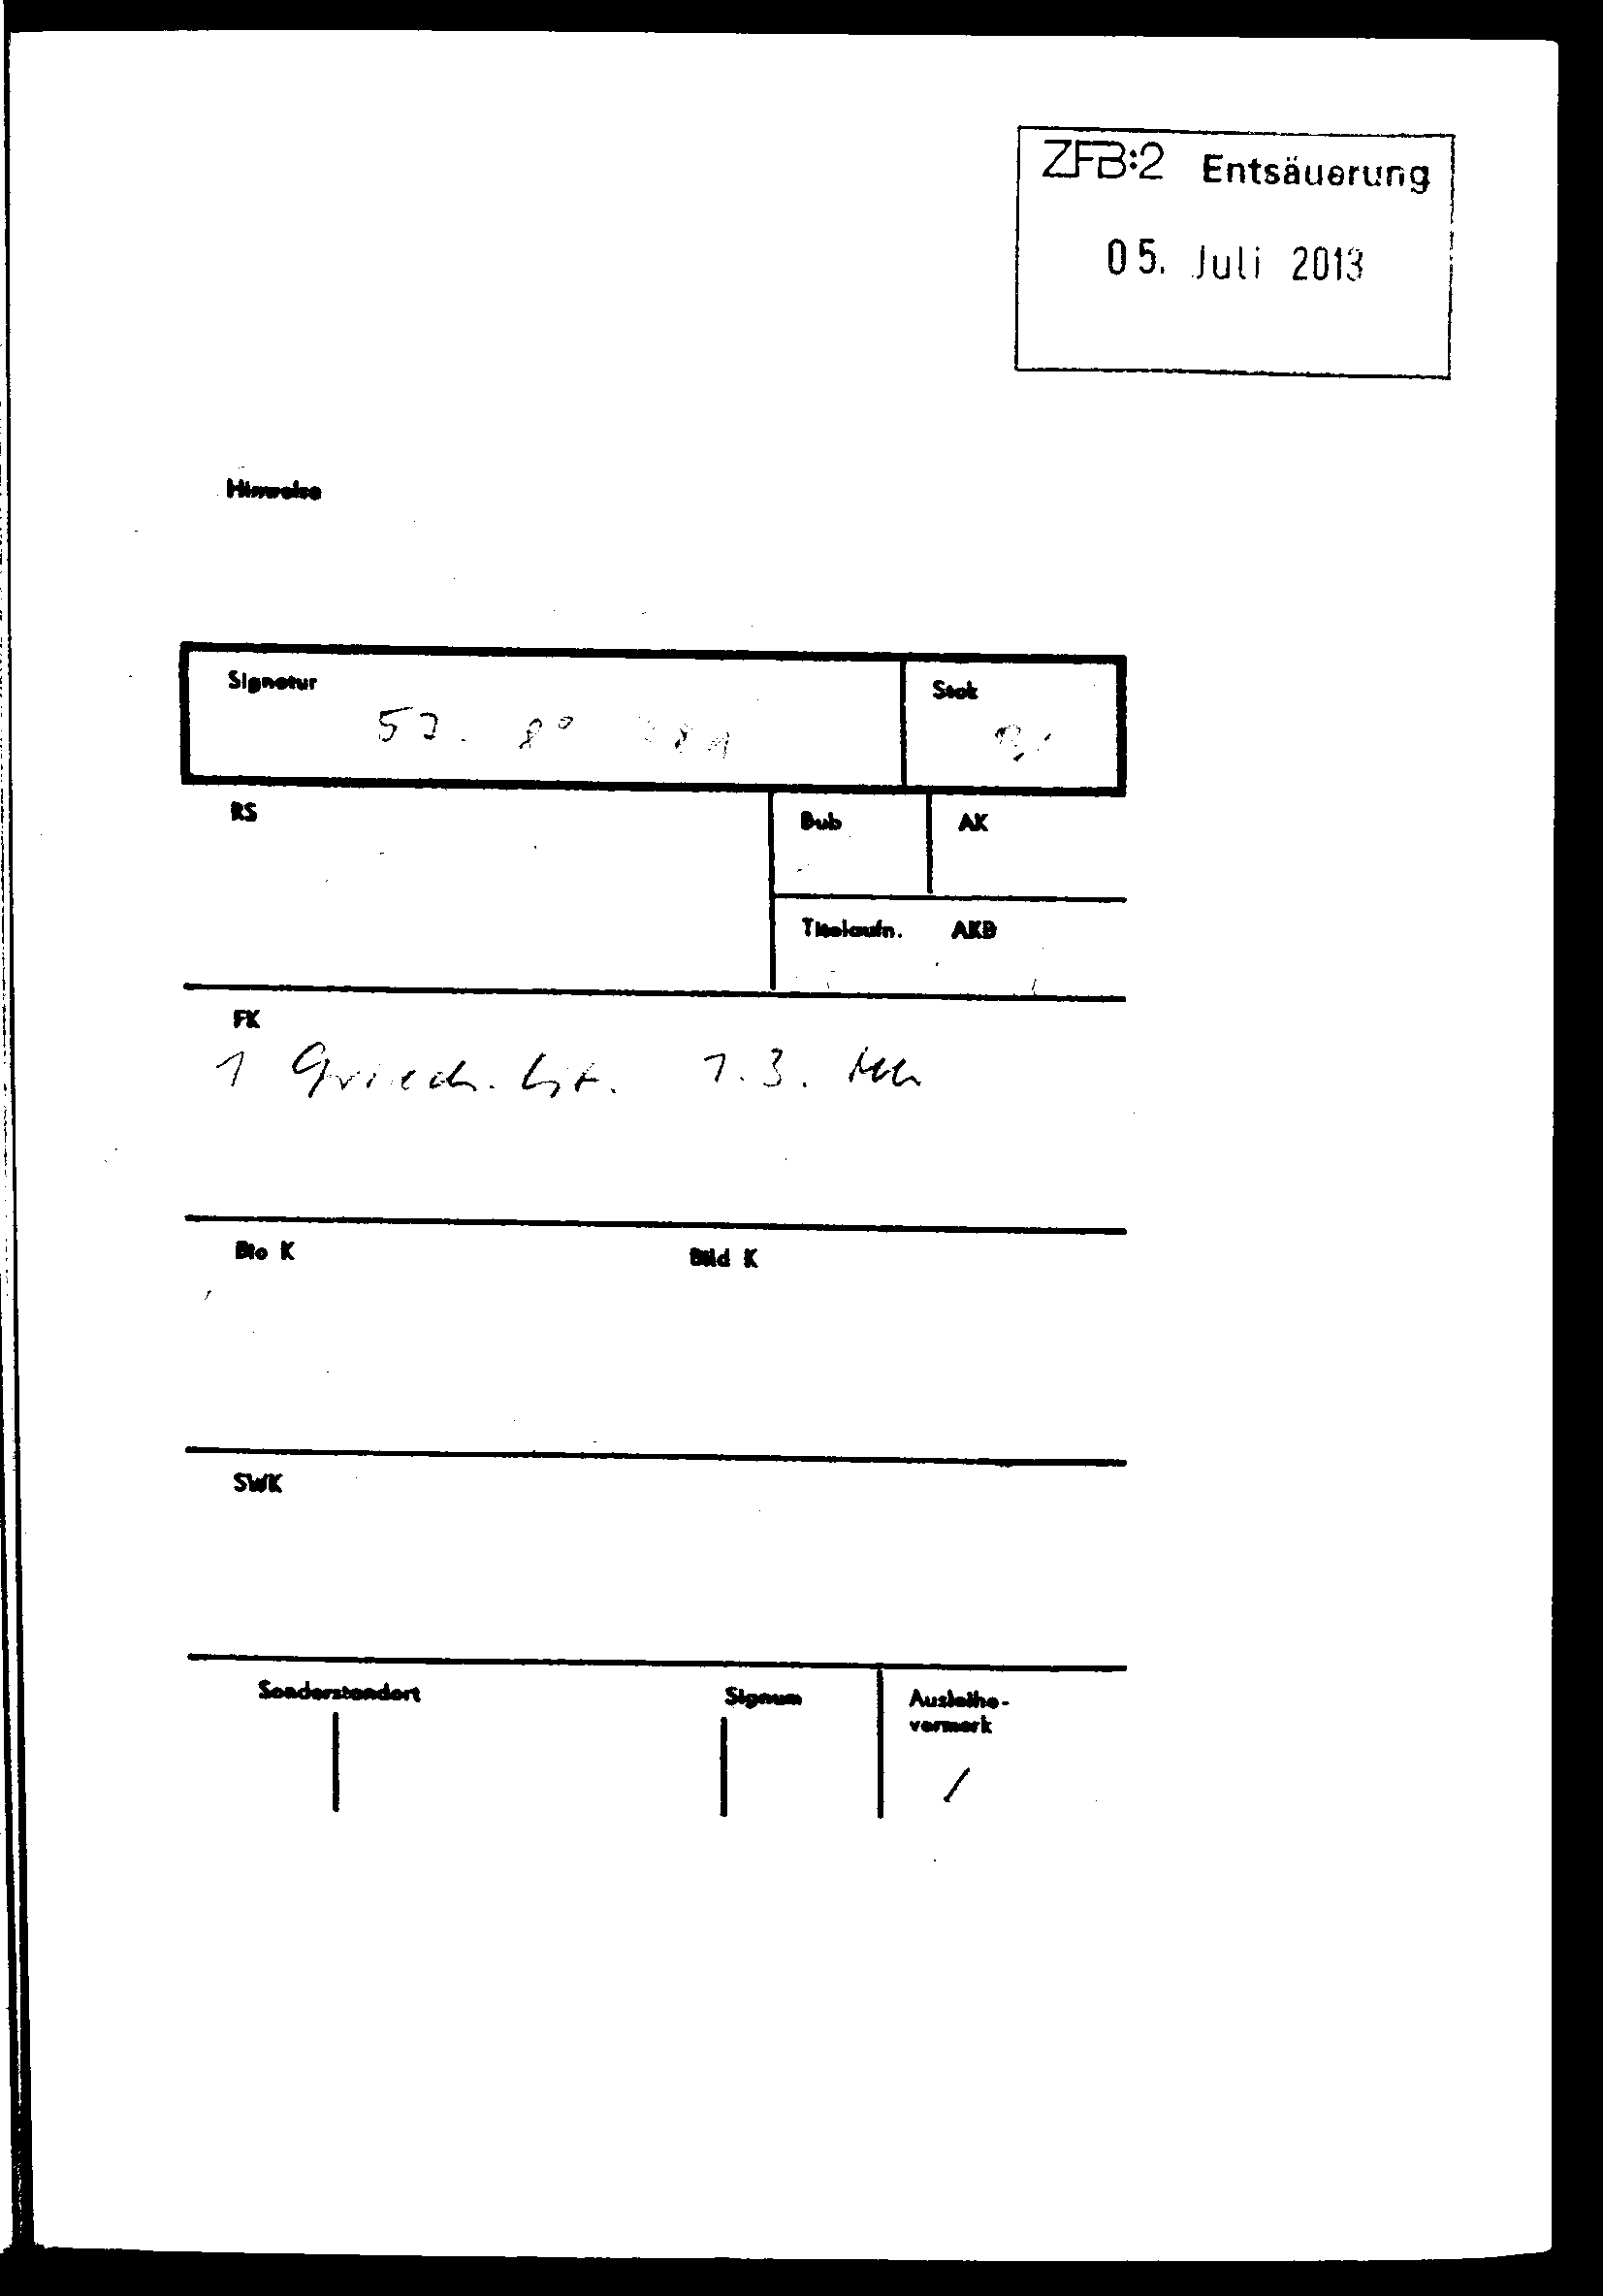 ZFB:2 Entsäuerung
05. Juli 2013
Hinweise
Signatur
Stok
57. 8°
RS
Bub
AK
Titelaufn. AKB
FK
1 Griech. Lit. 7.3.
Bio K
Bild K
SWK
Sonderstandort
Signum
Ausleihe-
vermerk
/